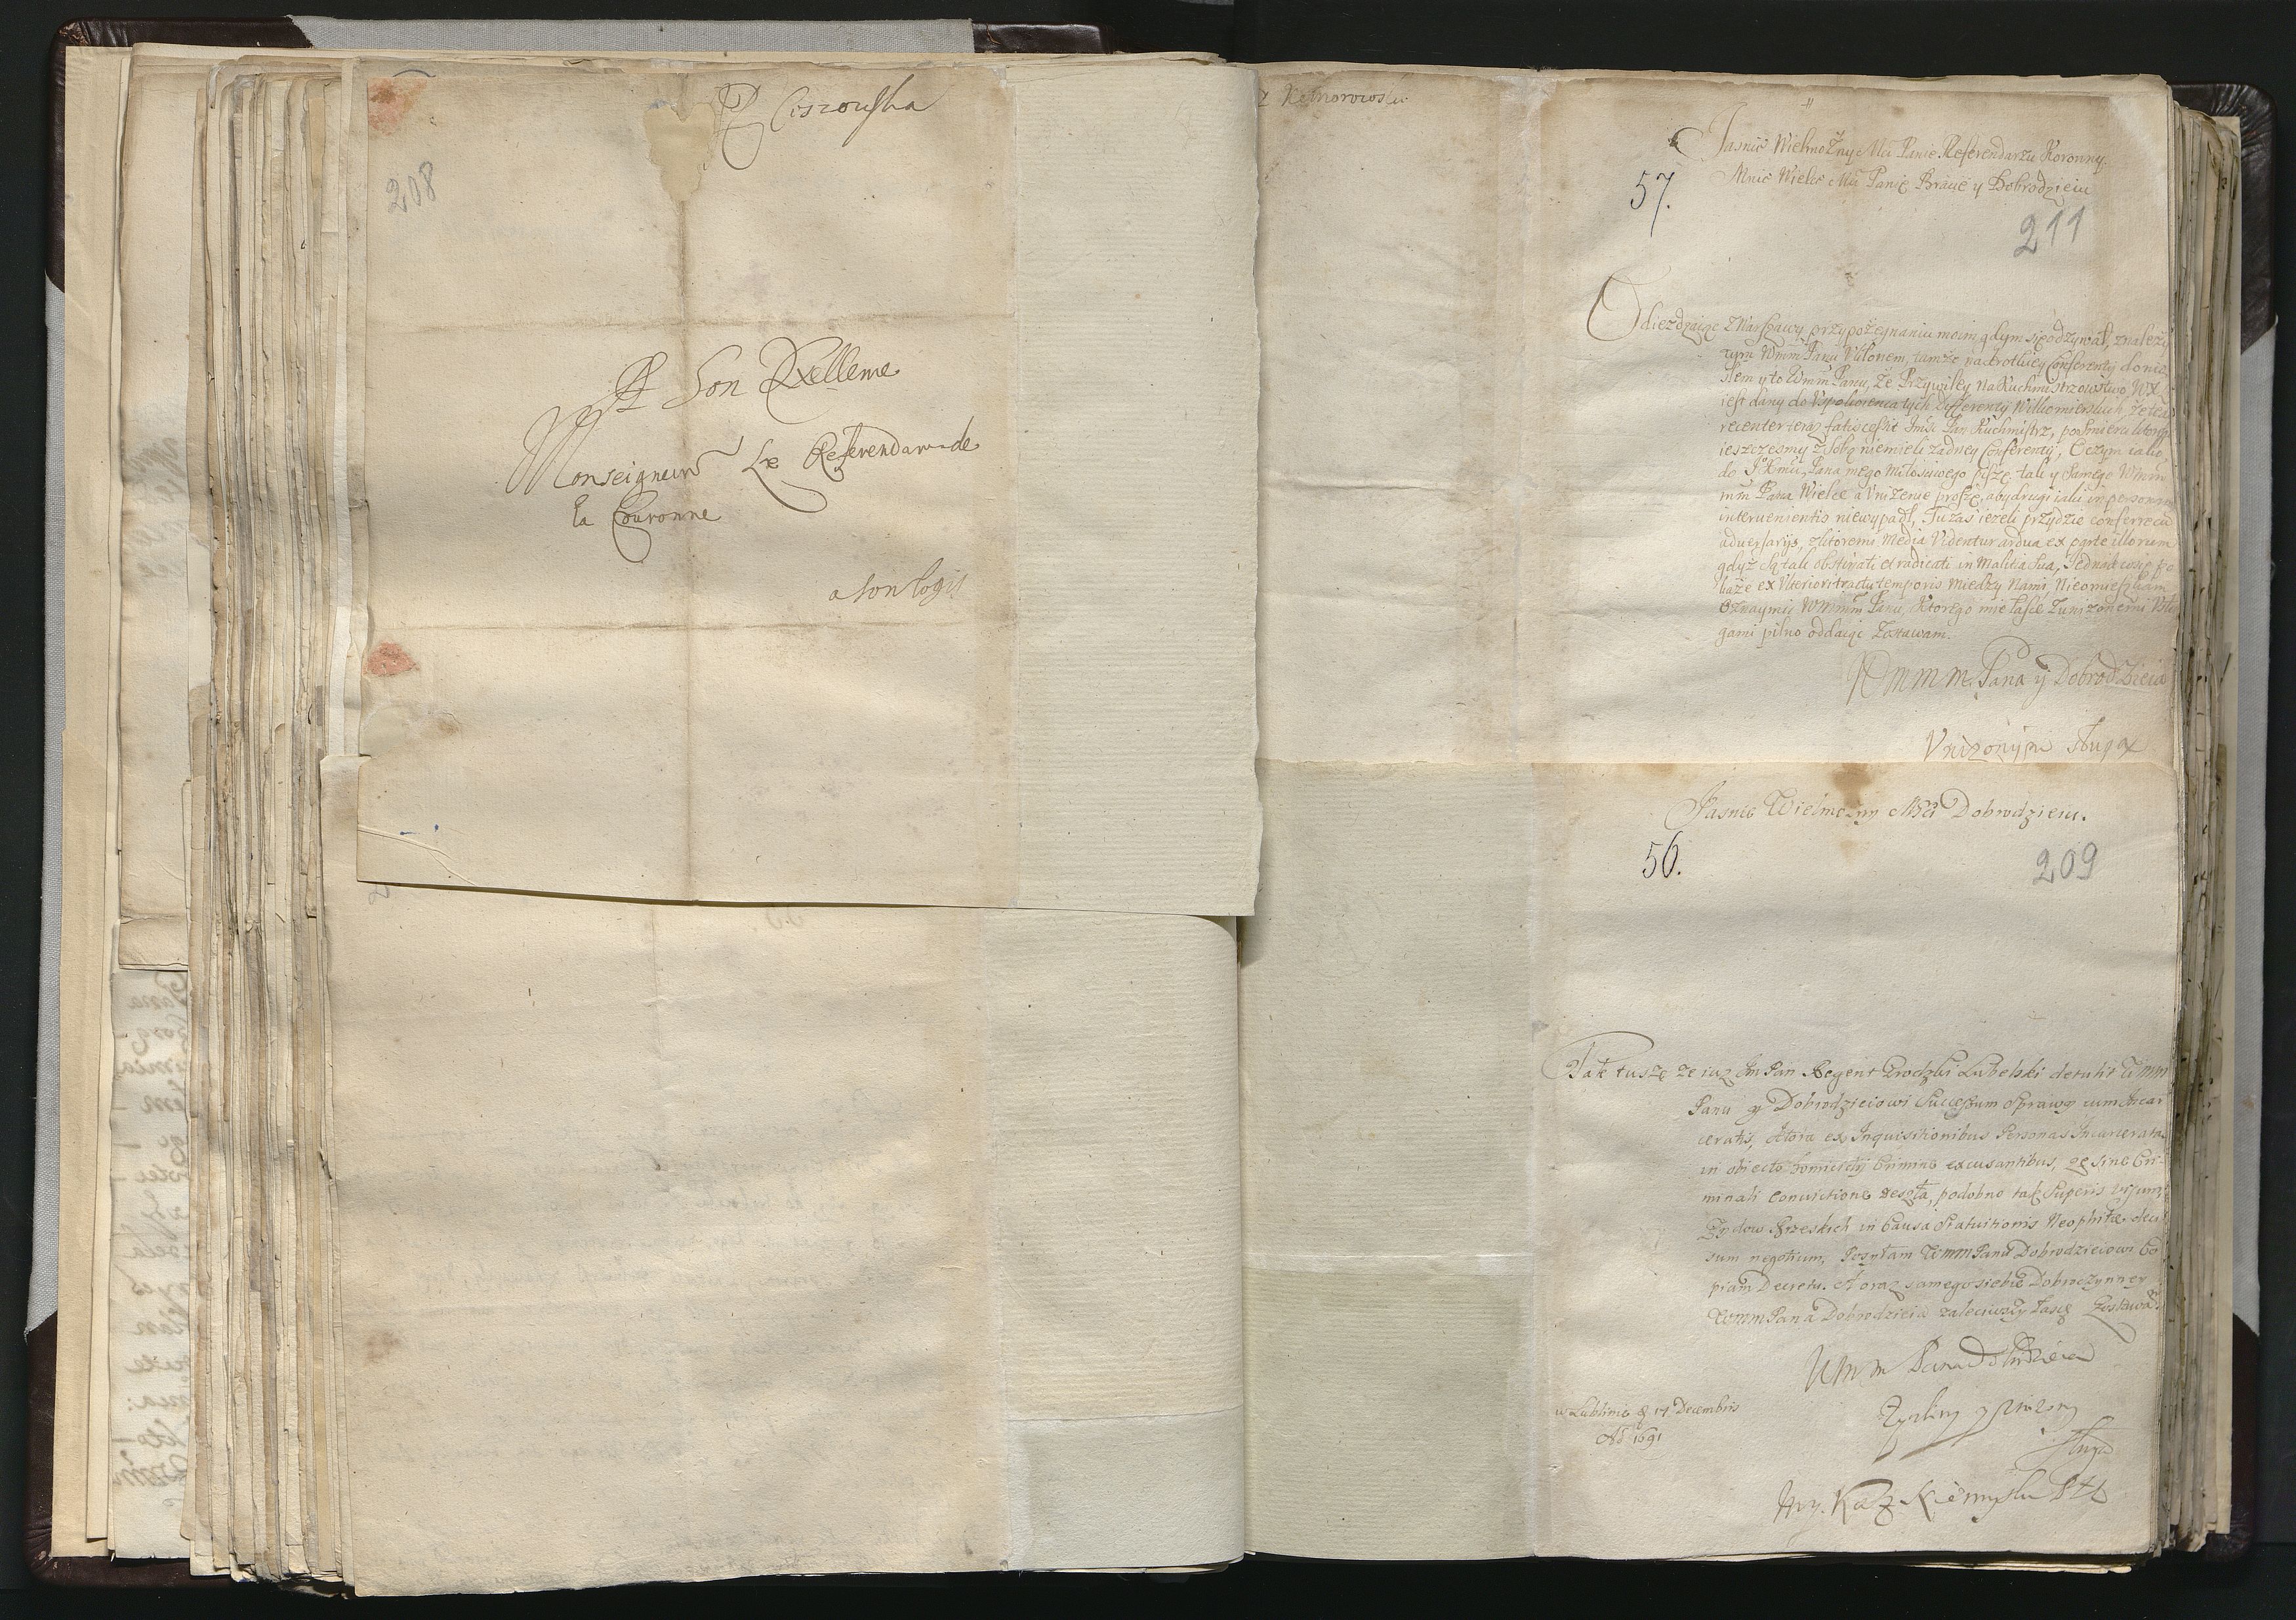 P Ciszouska
208
A Son Exellence
Monseigneur Le Referendar de
La Couronne
a son logis
z Komorowoski
Jasnie Wielmożny Mci Panie Referendarzu Koronny
Mnie Wielce Mci Panie Bracie y Dobrodzieiu
57.
211
Odiezdzaiąc z Warszawy przy pożegnaniu moim gdym się odzywał, znalezy
tym Wmm Panu Ukłonem, tamże na krotkiey Conferenty donio
słem y to Wmm Panu, że Przywiley na Kuchmistrzowstwo WX
iest dany do Uspokoienia tych Differenty Wilkomierskich, że też
recenter teraz fatis cessit Jmsc Pan Kuchmistrz, po smierci ktorego
ieszczesmy z sobą niemieli żadney Conferenty, O czym iako
do JKmci Pana mego Miłosciwego piszę, tak y samego Wmm
mm Pana Wielce a Uniżenie proszę, aby drugi iaki in personam
intervenientis niewypadł, Tu zas ieżeli przydzie conferre cu
adversarys, z ktoremi Media Videntur ardua ex parte illorum
gdyż są tak obstinati et radicati in Malitia sua, Jednak co się po
każe ex Ulteriori tractu temporis między Nami, Nieomieszkam
oznaymić Wmmm Panu, Ktorego mie łasce z unizonemi Usłu
gami pilno oddaiąc Zostawam.
Wmmm Pana y Dobrodzieia
Unizonym sługą
Jasnie Wielmozny Msci Dobrodzieiu.
56.
209
Tak tuszę ze iuz Jm Pan Regent Grodzki Lubelski detulit Wmm
Panu y Dobrodzieiowi Successum Sprawy cum Incar
ceratis, ktora ex Inquisitionibus Personas Incarceratas
in obiecto homicidij Crimine excusantibus, et sine Cri-
minali convictione zeszła, podobno tak Superis visum,
Zydow Brzeskich in Causa Statuitionis Neophitæ deci
sum negotium, Posyłam Wmm Panu Dobrodzieiowi Co
piam Decretu. A oraz samego siebie Dobroczynney
Wmm Pana Dobrodzieia zaleciwszy łasce Zostawam
Wmm Pana Dobrodzieia
Zyczliwy y Unizony
Sługa
w Lublinie d 17 Decembris
Ao 1691
Kaz